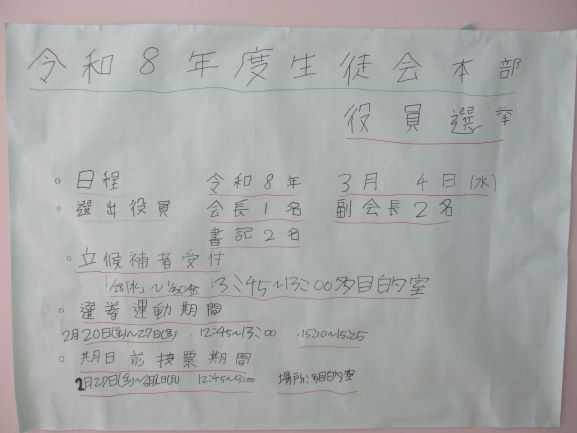 令和8年度生徒会本部
役員選挙
○日程 令和8年 3月 4日(水)
○選出役員 会長1名 副会長2名
書記2名
○立候補者受付
1/28(水)~1/30金 13:45~13:00多目的室
○選挙運動期間
2月20日(金)~27日(金) 12:45~13:00 15:10~15:25
○期日前投票期間
2月27日(金)~3月2日(月) 12:45~13:00 場所:多目的室